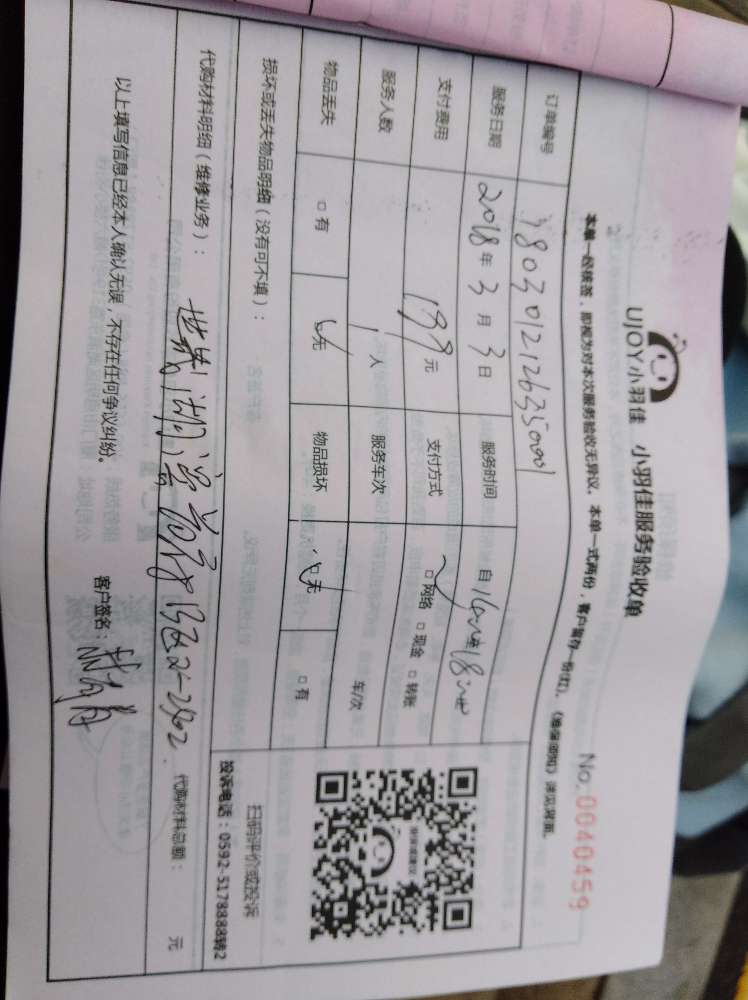 UJOY小羽佳 小羽佳服务验收单
No. 0040459
本单一经接签，即视为对本次服务验收无异议。本单一式两份，客户留存一份(红)。《维保须知》详见背面。
订单编号 180301212635001
服务日期 2018年3月3日 服务时间 自16:00至18:00
支付费用 199元 支付方式 □网络 □现金 □转账
服务人数 1人 服务车次 车/次
物品丢失 □有 □无 物品损坏 □无 □有
扫码评价或投诉
投诉电话：0592-5178888转2
损坏或丢失物品明细（没有可不填）：
代购材料明细（维修业务）： 代购材料总额： 元
以上填写信息已经本人确认无误，不存在任何争议纠纷。
客户签名：